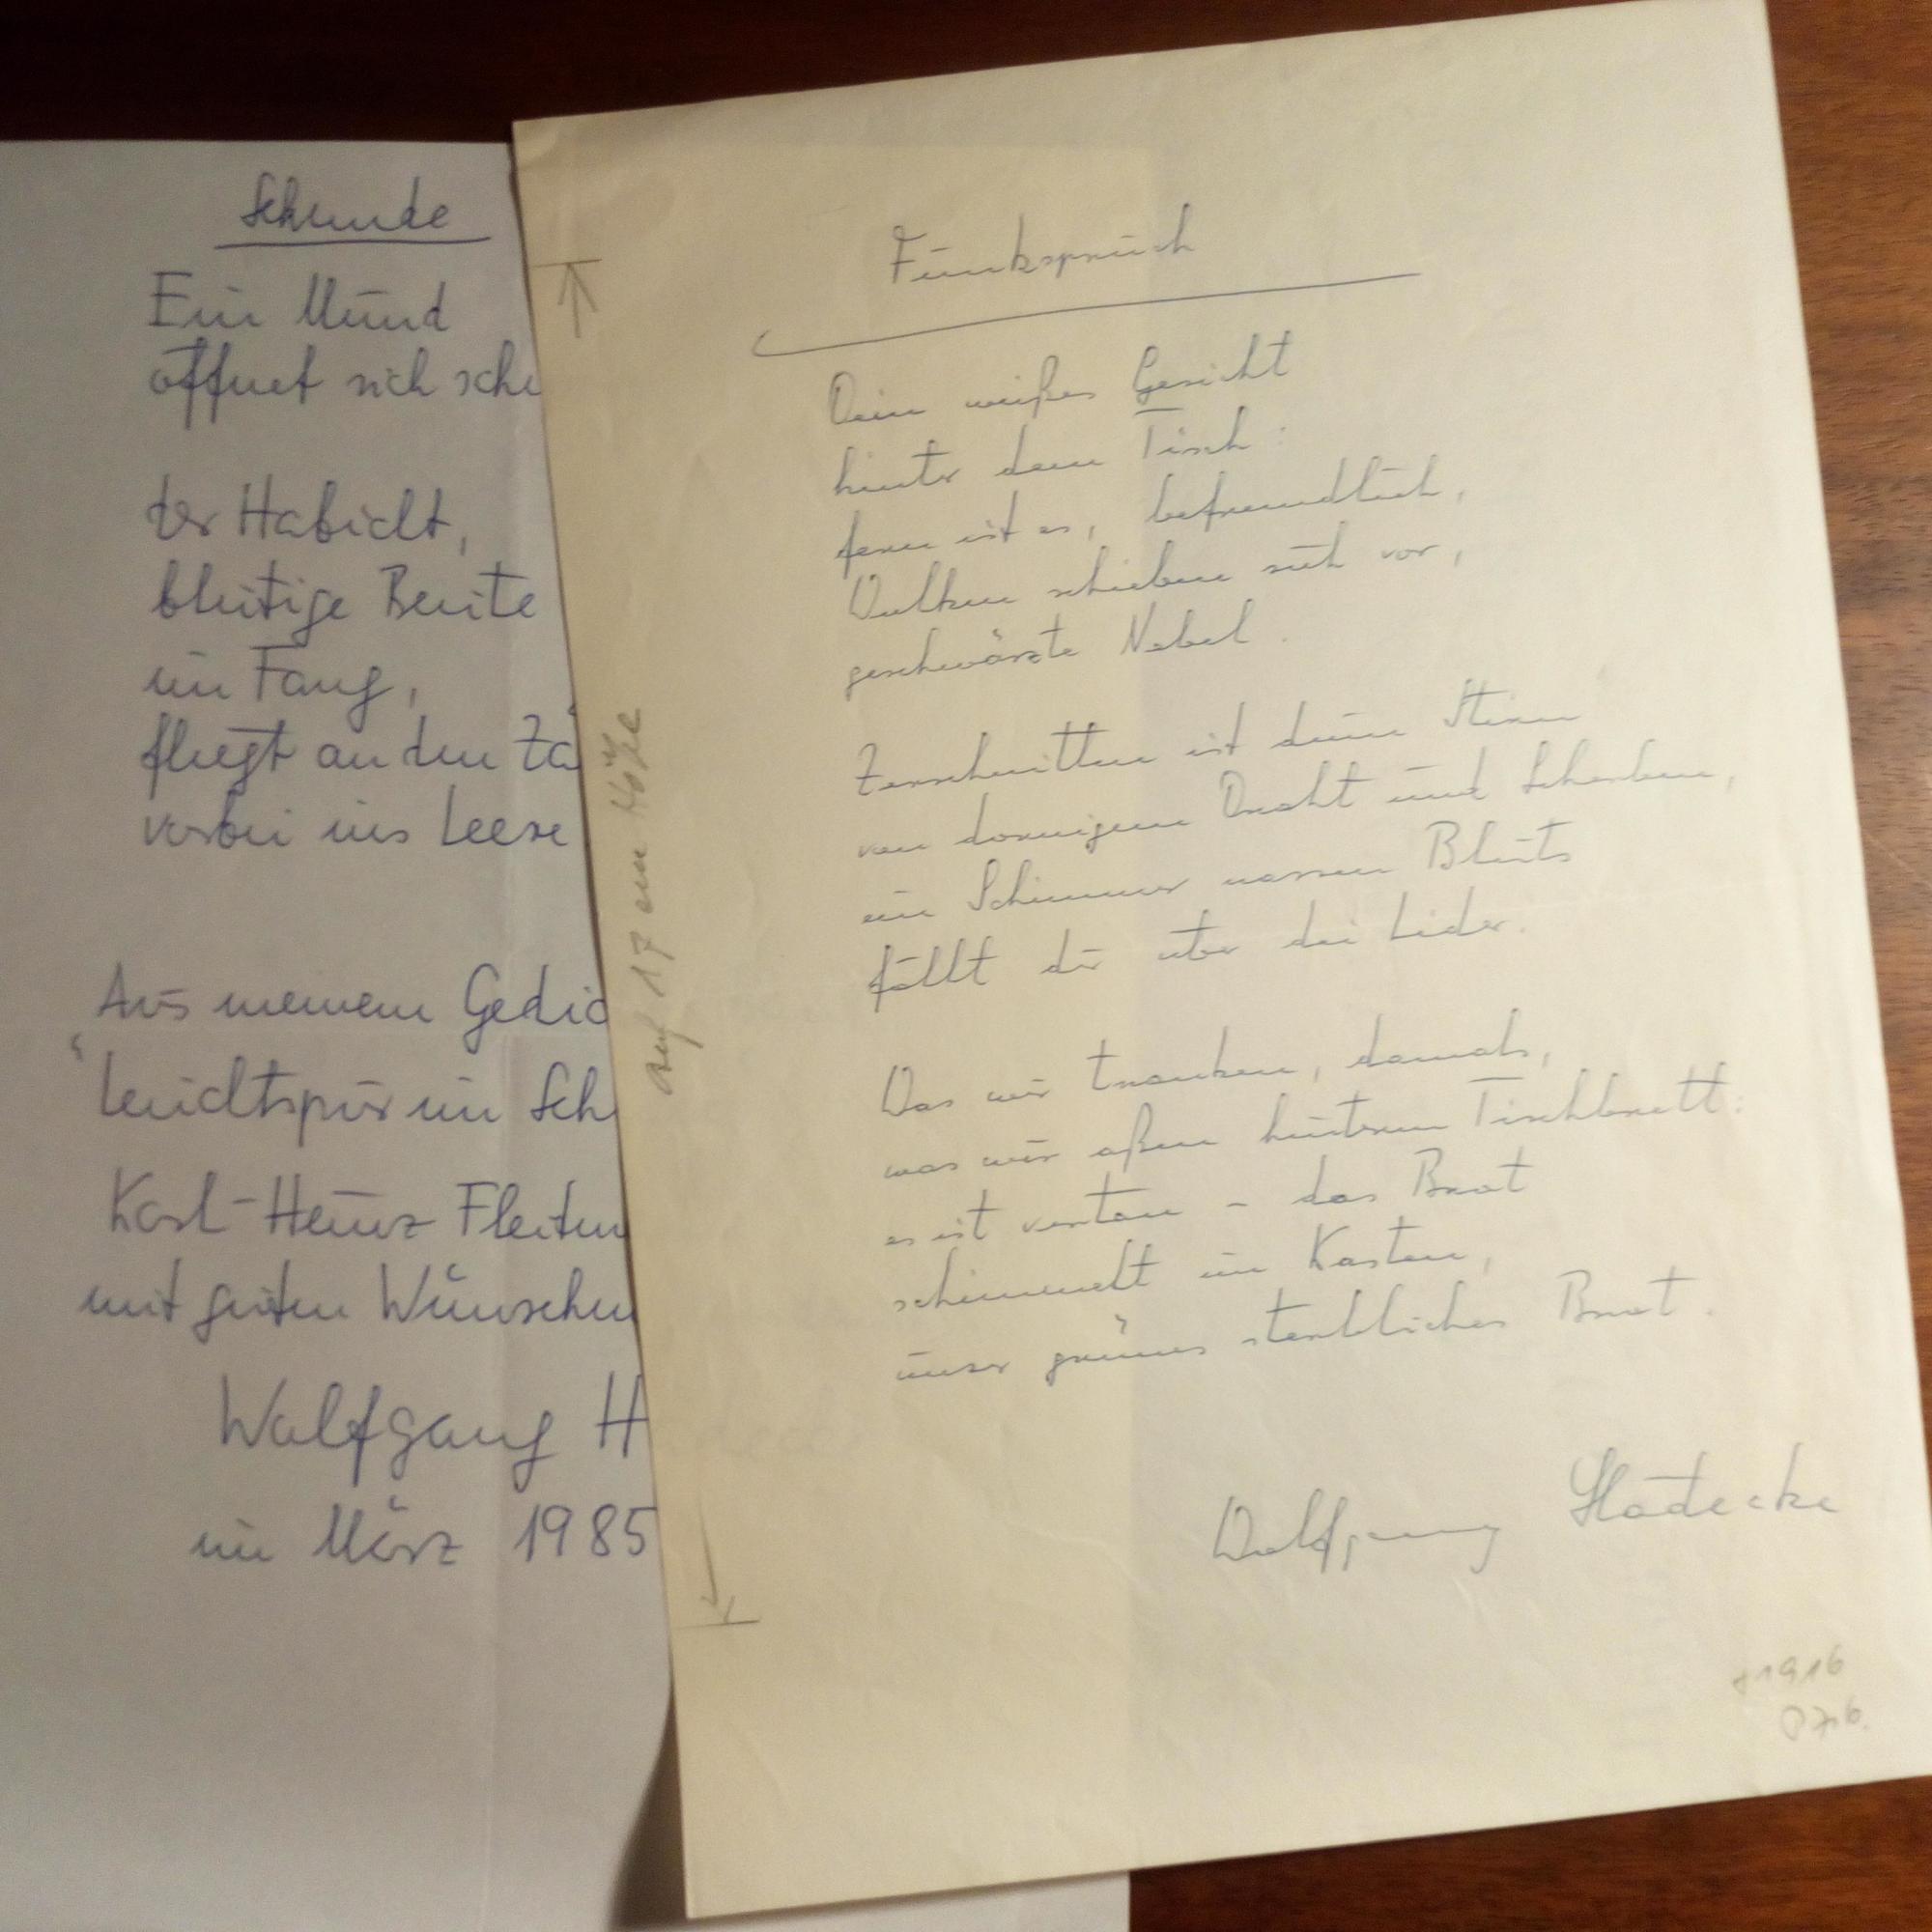 Sekunde
Ein Mund
öffnet sich
der Habicht,
blutige Beute
im Fang,
fliegt an den
vorbei ins Leere
Aus meinem
"Leuchtspur im
Karl-Heinz
mit guten Wünschen
Wolfgang H
im März 1985
Funkspruch
Dein weißes Gesicht
hinter dem Tisch:
fern ist es, befremdlich,
Wolken schieben sich vor,
geschwärzte Nebel.
Zerschnitten ist deine Stirn
von dornigem Draht und Scherben,
ein Schimmer nassen Bluts
fällt dir über die Lider.
Was wir tranken, damals,
was wir aßen hinterm Tischbrett:
es ist vertan – das Brot
schimmelt im Kasten,
unser grünes sterbliches Brot.
Wolfgang Hädecke
auf 17 cm Höhe